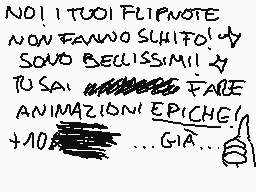 NO! I TUOI FLIPNOTE
NON FANNO SCHIFO!
SONO BELLISSIMI!
TU SAI FARE
ANIMAZIONI EPICHE!
+10 ...GIÀ...